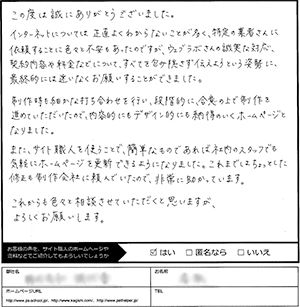 この度は誠にありがとうございました。
インターネットについては正直よくわからないことが多く、特定の業者さんに
依頼することに色々と不安もあったのですが、ウェブラボさんの誠実な対応、
契約内容や料金などについて、すべてを包み隠さず伝えようという姿勢に、
最終的には迷いなくお願いすることができました。
制作時も細かな打ち合わせを行い、段階的に、合意の上で制作を
進めていただいたので、内容的にもデザイン的にも納得のいくホームページと
なりました。
また、サイト職人を使うことで、簡単なものであれば社内のスタッフでも
気軽にホームページを更新できるようになりました。これまでしょちょっとした
修正も制作会社に頼んでいたので、非常に助かっています。
これからも色々相談させていただくと思いますが、
よろしくお願いします。
お客様の声を、サイト職人のホームページや
資料などでご紹介してもよろしいでしょうか
はい 匿名なら いいえ
御社名 お名前
ホームページURL TEL